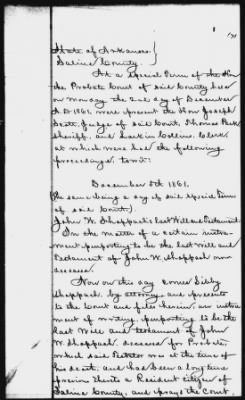 State of Arkansas }
Saline County. }
At a special Term of the Hon
the Probate Court of said County held
on Monday the 2nd day of December
A.D. 1861, were present the Hon Joseph
Scott, Judge of said Court, Thomas Pack
Sheriff, and Collins, Clerk
at which were had the following
proceedings, to wit:
December 5th 1861.
The same being a day of said Special Term
of said Court.
John W. Sheppard's Last Will and Testament.
In the matter of a certain instru-
ment purporting to be the last will and
Testament of John W. Sheppard now
deceased.
Now on this day comes Libby
Sheppard, by attorney, and presents
to the Court and files herein, an instru-
ment of writing, purporting to be the
Last Will and testament of John
W. Sheppard, deceased for Probate,
which said Testator was at the time of
his death, and had been a long time
previous thereto a Resident citizen of
Saline County, and prays the Court